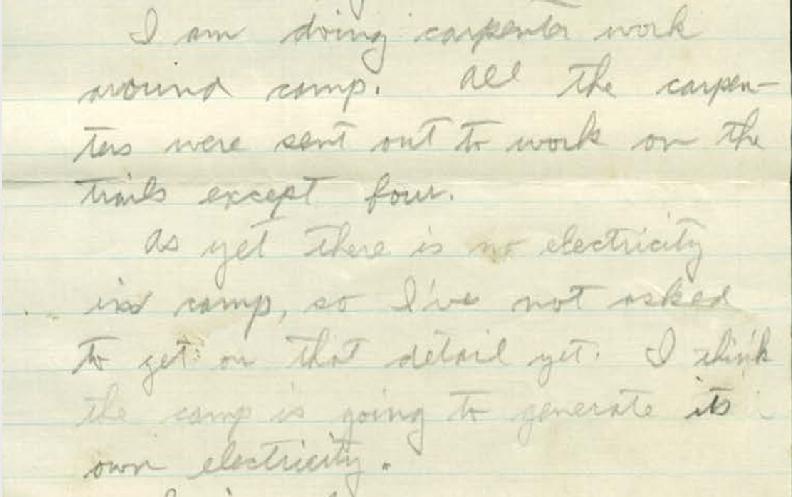 I am doing carpenter work
around camp. All the carpen-
ters were sent out to work on the
trails except four.
As yet there is no electricity
in camp, so I've not asked
to get on that detail yet. I think
the camp is going to generate its
own electricity.